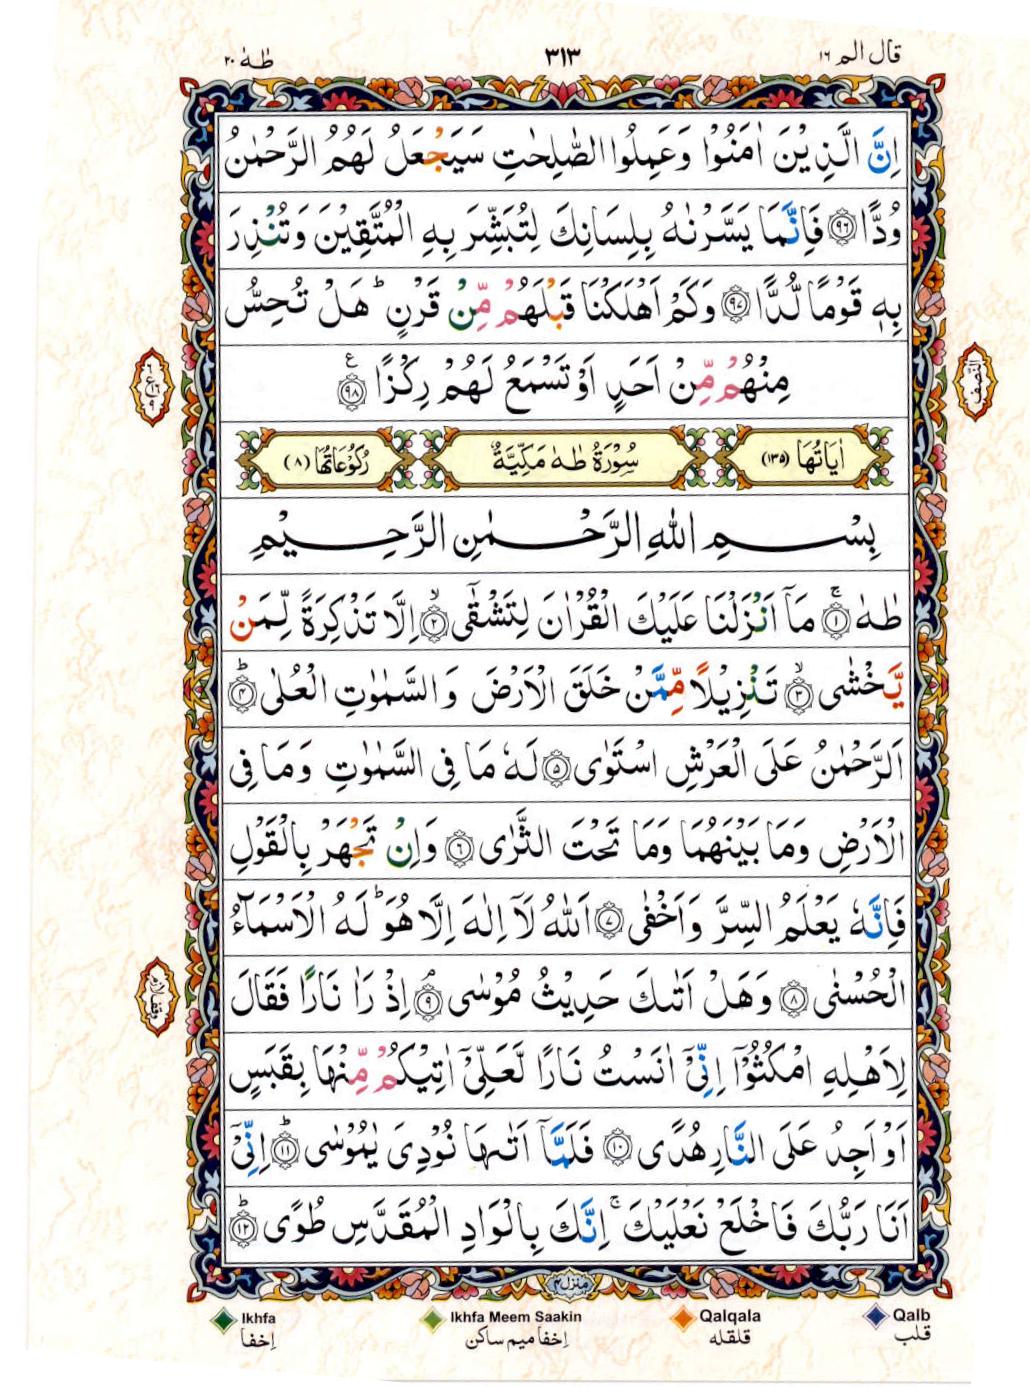 قال الم ١٦
٣١٣
طٰهٰ ٢٠
اِنَّ الَّذِيْنَ اٰمَنُوْا وَعَمِلُوا الصّٰلِحٰتِ سَيَجْعَلُ لَهُمُ الرَّحْمٰنُ
وُدًّا ﴿٩٦﴾ فَاِنَّمَا يَسَّرْنٰهُ بِلِسَانِكَ لِتُبَشِّرَ بِهِ الْمُتَّقِيْنَ وَتُنْذِرَ
بِهٖ قَوْمًا لُّدًّا ﴿٩٧﴾ وَكَمْ اَهْلَكْنَا قَبْلَهُمْ مِّنْ قَرْنٍ ؕ هَلْ تُحِسُّ
مِنْهُمْ مِّنْ اَحَدٍ اَوْ تَسْمَعُ لَهُمْ رِكْزًا ﴿٩٨﴾ ع
النّصف
اٰيَاتُهَا (١٣٥)
سُوْرَةُ طٰهٰ مَكِّيَّةٌ
رُكُوْعَاتُهَا (٨)
بِسْمِ اللّٰهِ الرَّحْمٰنِ الرَّحِيْمِ
طٰهٰ ۚ﴿١﴾ مَاۤ اَنْزَلْنَا عَلَيْكَ الْقُرْاٰنَ لِتَشْقٰۤى ۙ﴿٢﴾ اِلَّا تَذْكِرَةً لِّمَنْ
يَّخْشٰى ۙ﴿٣﴾ تَنْزِيْلًا مِّمَّنْ خَلَقَ الْاَرْضَ وَالسَّمٰوٰتِ الْعُلٰى ؕ﴿٤﴾
اَلرَّحْمٰنُ عَلَى الْعَرْشِ اسْتَوٰى ﴿٥﴾ لَهٗ مَا فِى السَّمٰوٰتِ وَمَا فِى
الْاَرْضِ وَمَا بَيْنَهُمَا وَمَا تَحْتَ الثَّرٰى ﴿٦﴾ وَاِنْ تَجْهَرْ بِالْقَوْلِ
فَاِنَّهٗ يَعْلَمُ السِّرَّ وَاَخْفٰى ﴿٧﴾ اَللّٰهُ لَاۤ اِلٰهَ اِلَّا هُوَ ؕ لَهُ الْاَسْمَآءُ
الْحُسْنٰى ﴿٨﴾ وَهَلْ اَتٰىكَ حَدِيْثُ مُوْسٰى ۘ﴿٩﴾ اِذْ رَاٰ نَارًا فَقَالَ
لِاَهْلِهِ امْكُثُوْۤا اِنِّىْۤ اٰنَسْتُ نَارًا لَّعَلِّىْۤ اٰتِيْكُمْ مِّنْهَا بِقَبَسٍ
اَوْ اَجِدُ عَلَى النَّارِ هُدًى ﴿١٠﴾ فَلَمَّاۤ اَتٰىهَا نُوْدِىَ يٰمُوْسٰى ؕ﴿١١﴾ اِنِّىْۤ
اَنَا رَبُّكَ فَاخْلَعْ نَعْلَيْكَ ۚ اِنَّكَ بِالْوَادِ الْمُقَدَّسِ طُوًى ؕ﴿١٢﴾
منزل ٤
Ikhfa
Ikhfa Meem Saakin
Qalqala
Qalb
اِخفا
اِخفا میم ساکن
قلقله
قلب